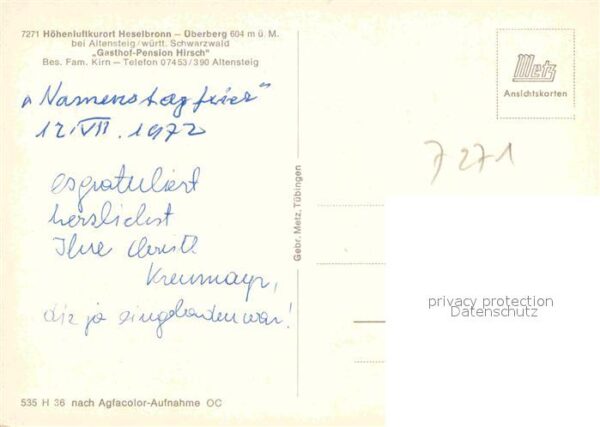 7271 Höhenluftkurort Heselbronn - Überberg 604 m ü. M.
bei Altensteig/württ. Schwarzwald
„Gasthof-Pension Hirsch"
Bes. Fam. Kirn — Telefon 07453/390 Altensteig
Metz
Ansichtskarten
"Namenstagfeier"
12.VII.1972
7271
es gratuliert
herzlichst
Ihre
die ja eingeladen war!
Gebr. Metz, Tübingen
privacy protection
Datenschutz
535 H 36 nach Agfacolor-Aufnahme OC